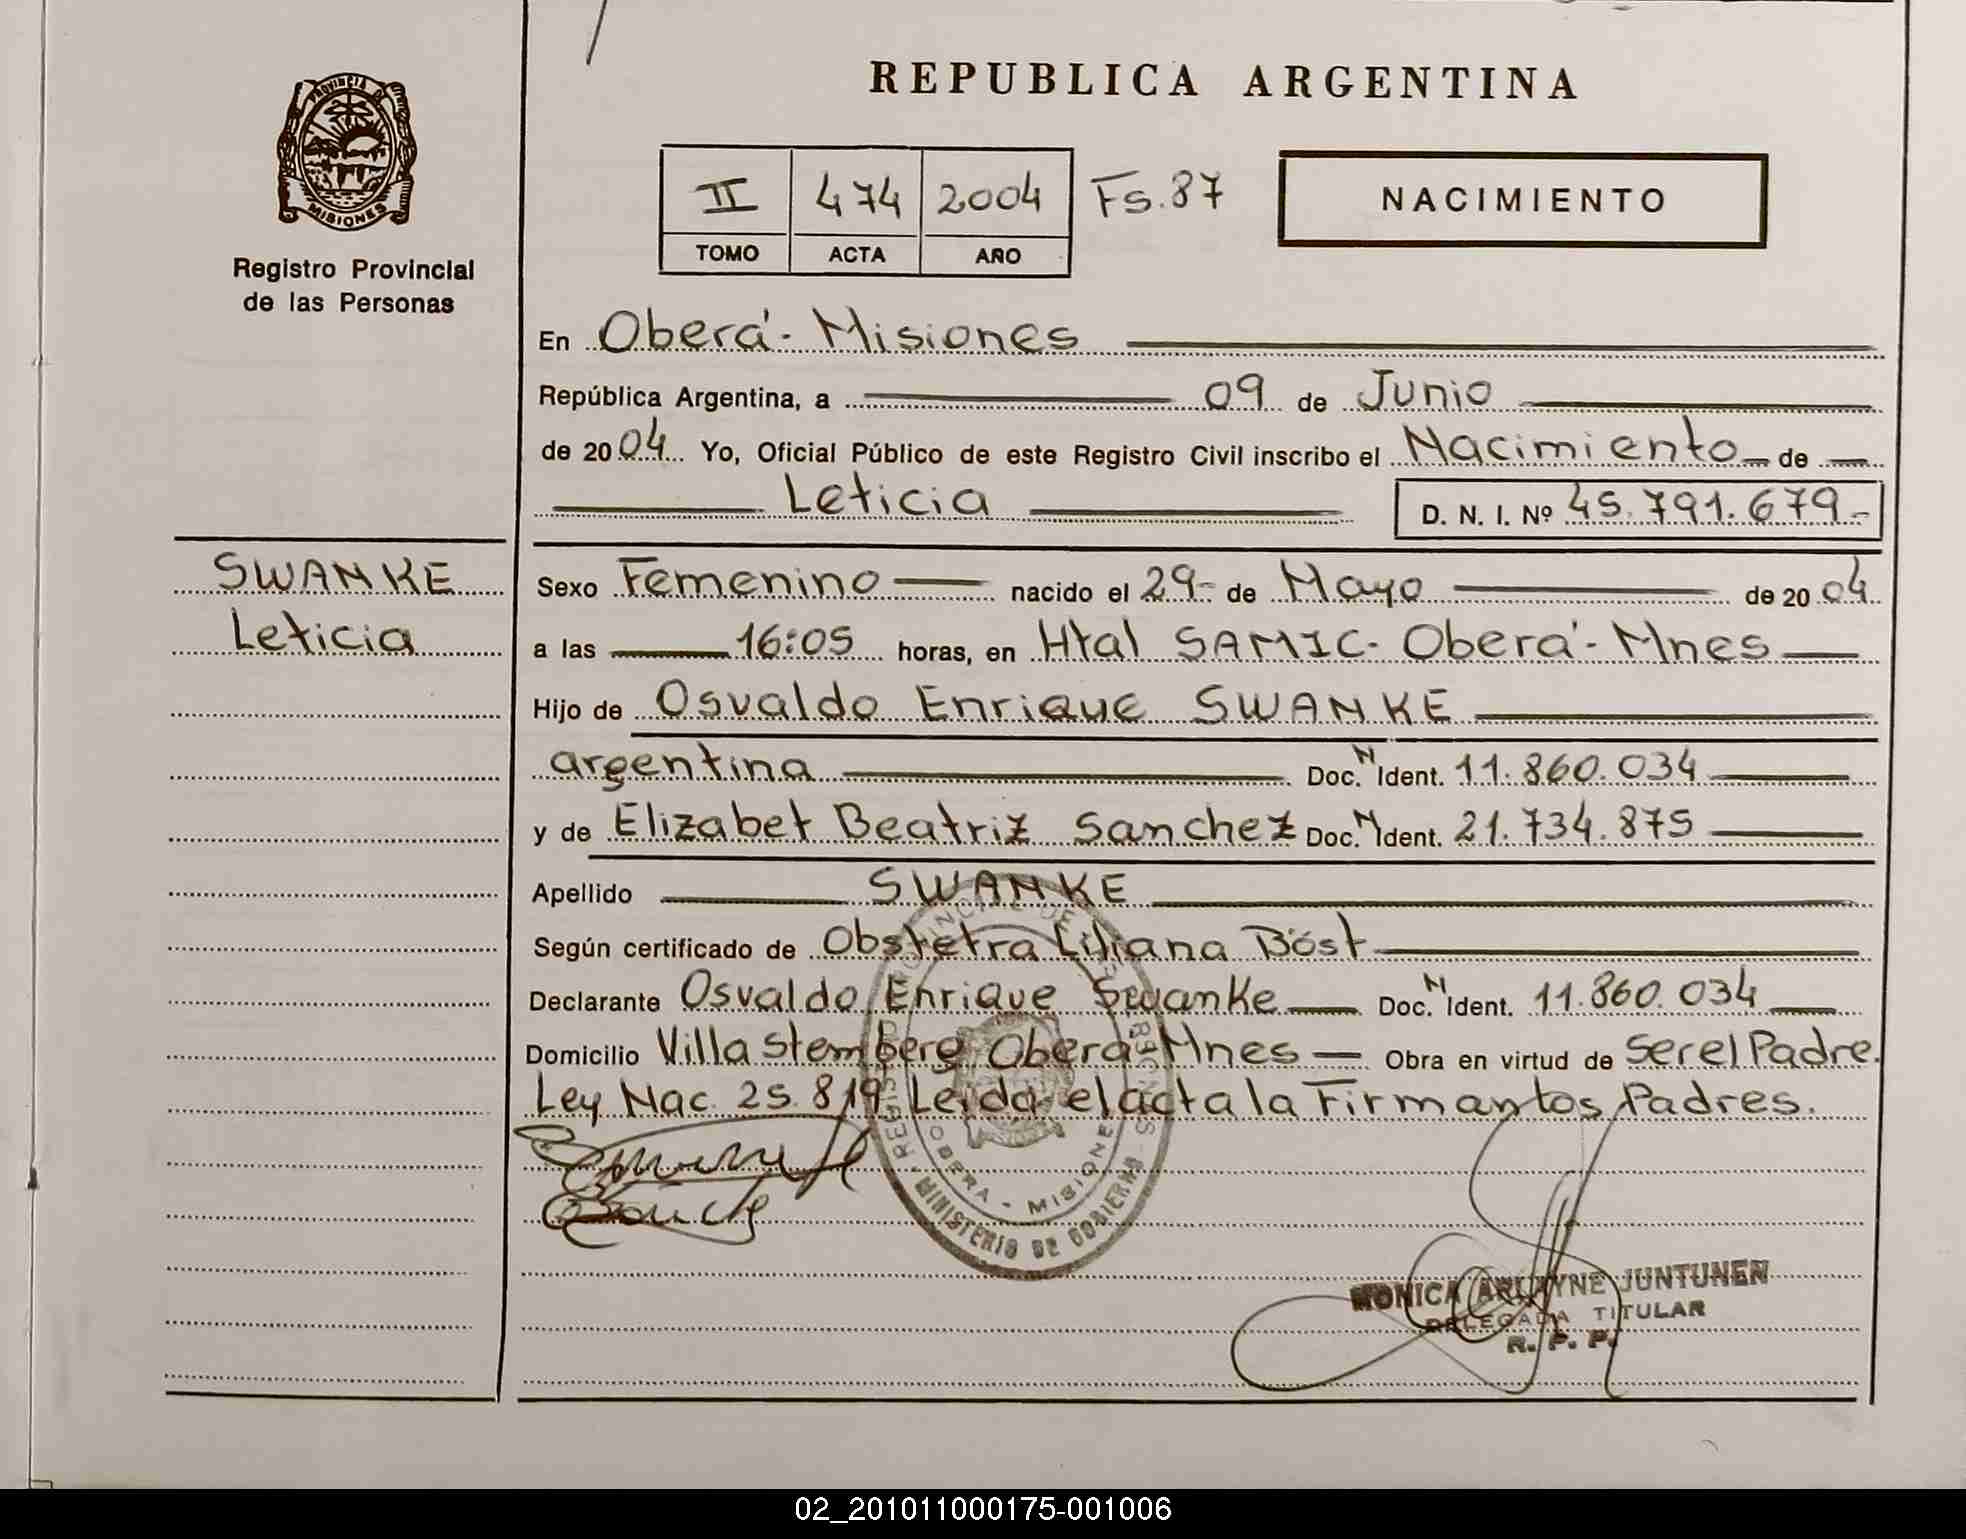 REPUBLICA ARGENTINA
PROVINCIA DE
MISIONES
Registro Provincial
de las Personas
II 474 2004 Fs. 87
TOMO ACTA AÑO
NACIMIENTO
En Oberá - Misiones
República Argentina, a 09 de Junio
de 2004 Yo, Oficial Público de este Registro Civil inscribo el Nacimiento de
Leticia D. N. I. Nº 45.791.679-
SWANKE
Leticia
Sexo Femenino nacido el 29- de Mayo de 2004
a las 16:05 horas, en Htal SAMIC - Oberá - Mnes
Hijo de Osvaldo Enrique SWANKE
argentina Doc. N Ident. 11.860.034
y de Elizabet Beatriz Sanchez Doc. N Ident. 21.734.875
Apellido SWANKE
Según certificado de Obstetra Liliana Bóst
Declarante Osvaldo Enrique Swanke Doc. N Ident. 11.860.034
Domicilio Villa Stemberg Oberá - Mnes Obra en virtud de Ser el Padre.
Ley Nac. 25.819 Leida el acta la Firman tos Padres.
OBERA - MISIONES
MINISTERIO DE GOBIERNO
MONICA ARLAYNE JUNTUNEN
DELEGADA TITULAR
R. P. P.
02_201011000175-001006